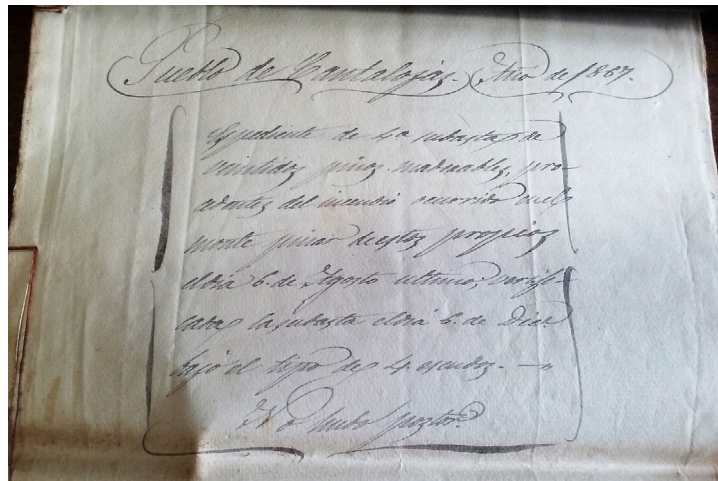 Pueblo de Cantalojas. Año de 1867.
Expediente de 4a subasta de
veintidos pinos maderables, pro-
cedentes del incendio ocurrido en el
monte pinar de estos propios
el dia 6. de Agosto ultimo; verifi-
cada la subasta el dia 6. de Dice
bajo el tipo de 4. escudos. —
No hubo postor.